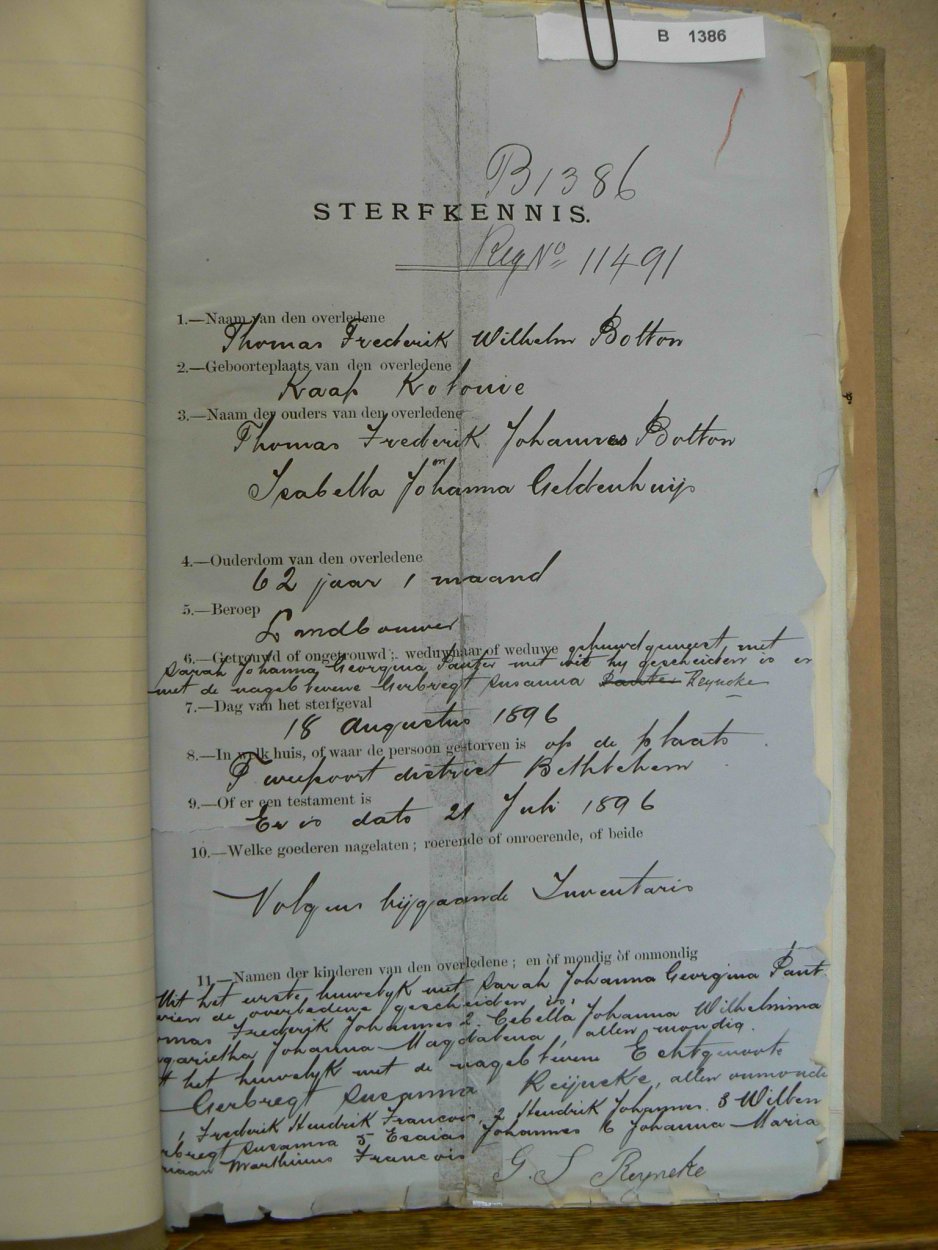 B 1386
B1386
STERFKENNIS.
Reg No 11491
1.—Naam van den overledene
Thomas Frederik Wilhelm Bolton
2.—Geboorteplaats van den overledene
Kaap Kolonie
3.—Naam der ouders van den overledene
Thomas Frederik Johannes Bolton
en
Isabella Johanna Geldenhuijs
4.—Ouderdom van den overledene
62 jaar 1 maand
5.—Beroep
Landbouwer
6.—Getrouwd of ongetrouwd; weduwnaar of weduwe gehuwd geweest met
Sarah Johanna Georgina Panter met wie hij gescheiden is en
met de nageblevene Gerbregt Susanna Panter Reyneke
7.—Dag van het sterfgeval
18 Augustus 1896
8.—In welk huis, of waar de persoon gestorven is op de plaats
Tweepoort district Bethlehem
9.—Of er een testament is
Er is dato 21 Juli 1896
10.—Welke goederen nagelaten; roerende of onroerende, of beide
Volgens bijgaande Inventaris
11.—Namen der kinderen van den overledene; en òf mondig òf onmondig
Uit het eerste huwelyk met Sarah Johanna Georgina Pant
wien de overledene gescheiden is,
omas Frederik Johannes 2. Johanna Wilhelmina
garietha Johanna Magdalena, allen mondig.
t het huwelyk met de nageblevene Echtgenoote
Gerbregt Susanna Reijneke, allen onmondi
1 Frederik Hendrik Francois 2 Hendrik Johannes 3 Willem
rbregt Susanna 5 Esaias Johannes 6 Johanna Maria
riaan Marthinus Francois
G. S Reyneke